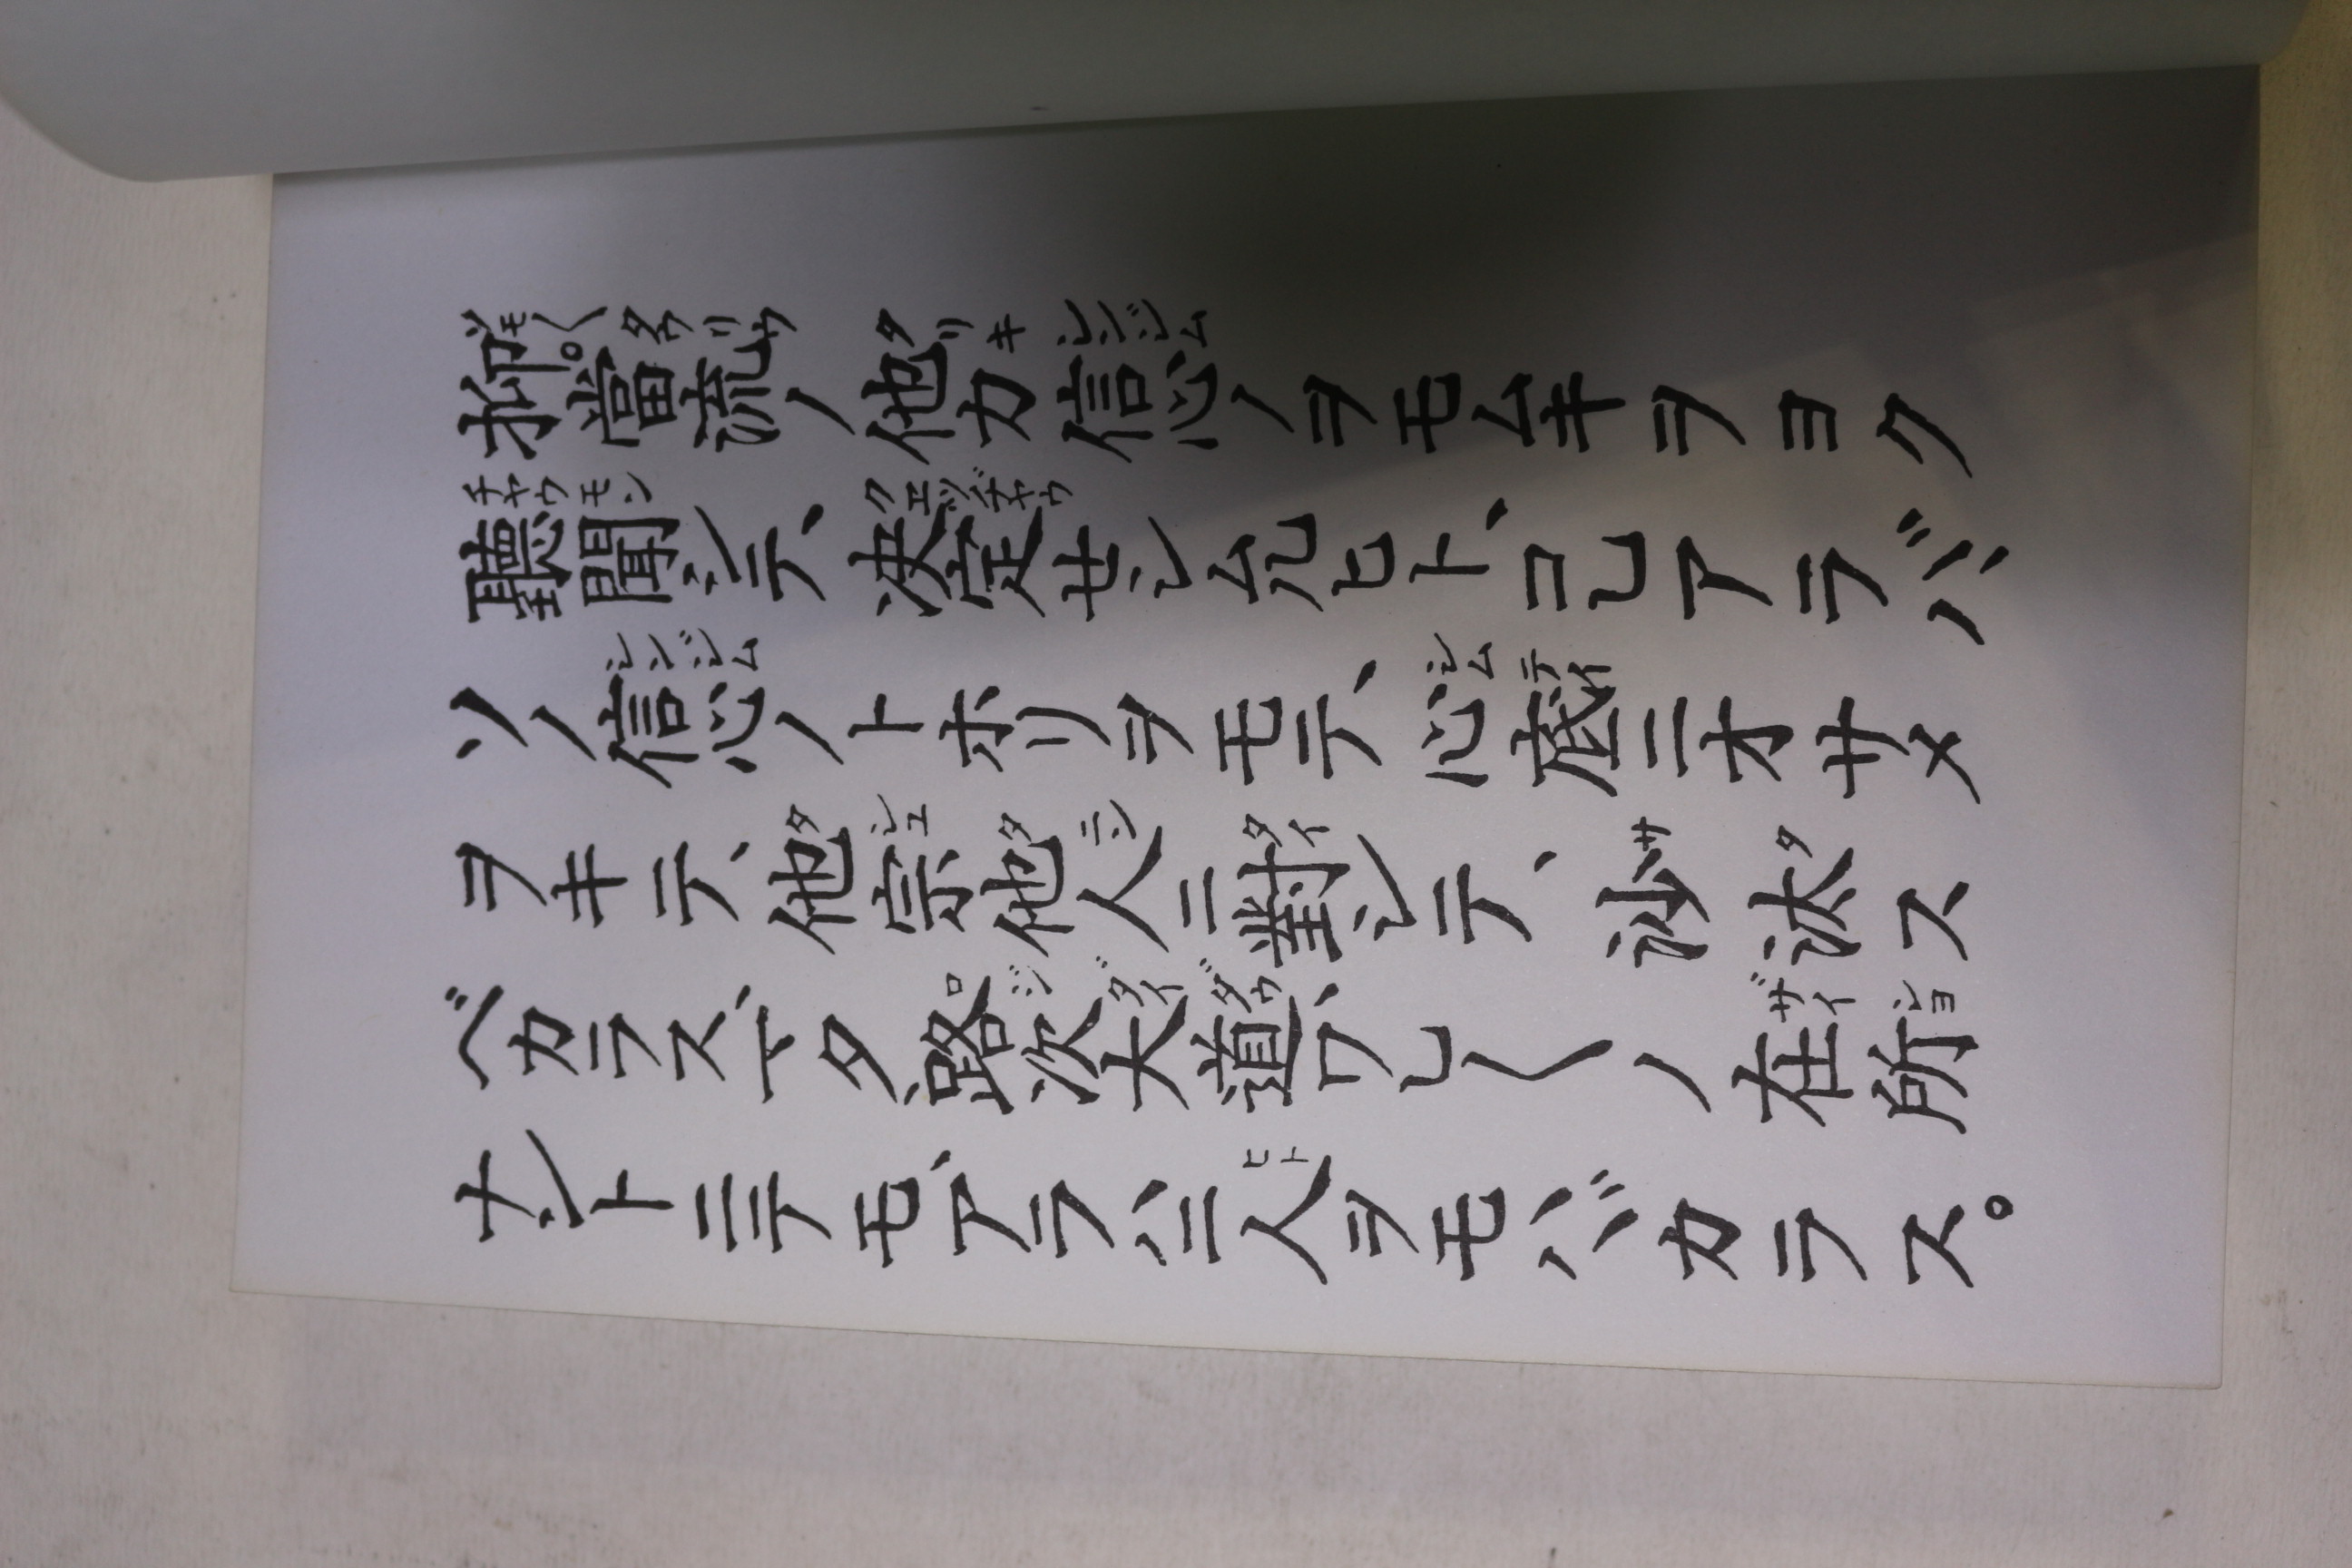 抑。當流ノ他力信心ノヲモムキヲヨク
聽聞シテ、决定セシムルヒト、コレアラバ、
ソノ信心ノトホリヲモテ、心底ニオサメ
ヲキテ、他宗他人ニ對シテ、沙汰ス
ベカラス、マタ路次大道、ワレ〱ノ在所
ナントニテモ、アラハニ人ヲモハヾカラス。